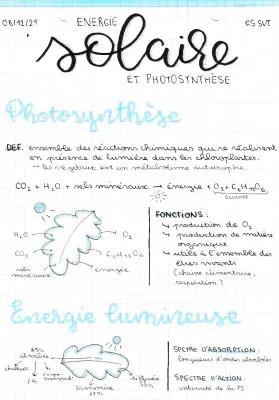 08/12/21
ENERGIE
ES SVT
solaire
ET PHOTOSYNTHÈSE
Photosynthèse
DEF. ensemble des réactions chimiques qui se réalisent
en présence de lumière dans les chloroplastes.
→ les végétaux ont un métabolisme autotrophe.
CO₂ + H₂O + sels minéraux → énergie + O₂ + C₆H₁₂O₆
GLUCOSE
H₂O
O₂
CO₂
C₆H₁₂O₆
sels
minéraux
énergie
FONCTIONS :
↳ production de O₂
↳ production de matière
organique
↳ utile à l'ensemble des
êtres vivants
(chaîne alimentaire,
respiration)
Énergie lumineuse
absorbée
chaleur
PS
transmise
diffusée
SPCTRE D'ABSORPTION :
longueurs d'ondes absorbées
SPECTRE D'ACTION :
intensité de la PS